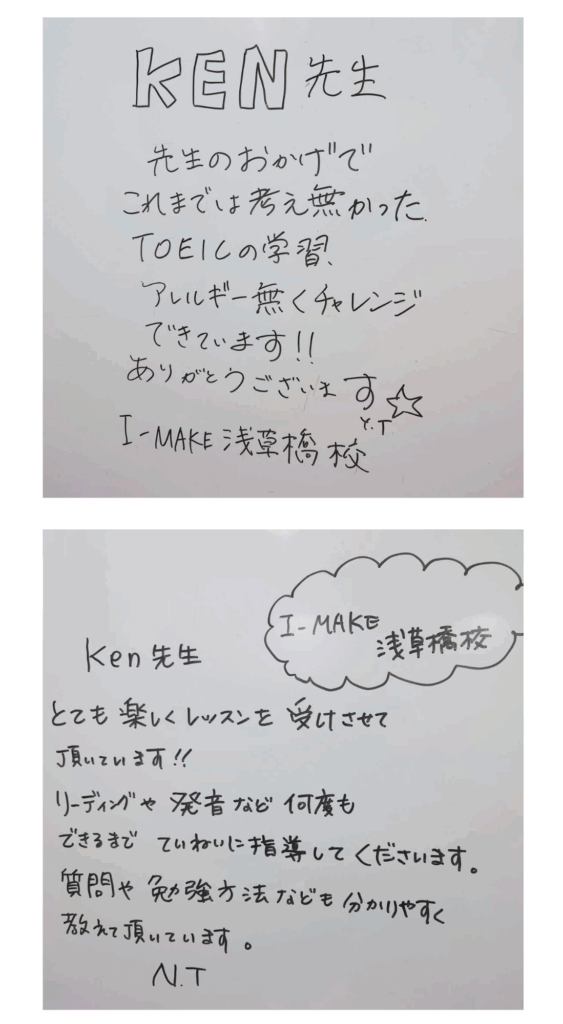 KEN 先生
先生のおかげで
これまでは考え無かった、
TOEICの学習、
アレルギー無くチャレンジ
できています!!
ありがとうございます☆
Y.T
I-MAKE 浅草橋校
I-MAKE
浅草橋校
Ken 先生
とても 楽しくレッスンを 受けさせて
頂いています!!
リーディングや 発音など 何度も
できるまで ていねいに指導してくださいます。
質問や 勉強方法なども 分かりやすく
教えて頂いています。
N.T